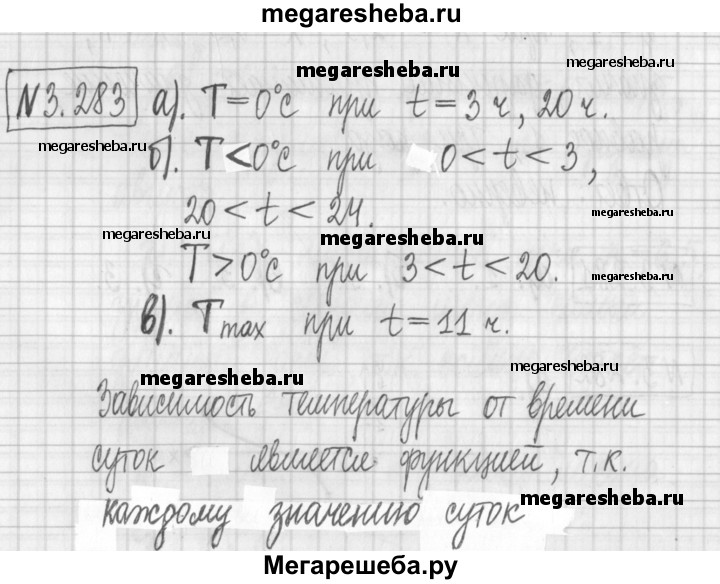 megaresheba.ru
megaresheba.ru
N3.283 а). T=0°C при t=3 ч, 20 ч.
megaresheba.ru
megaresheba.ru
б). T<0°C при 0<t<3,
megaresheba.ru
20<t<24.
megaresheba.ru
megaresheba.ru
T>0°C при 3<t<20.
megaresheba.ru
megaresheba.ru
в). Tmax при t=11 ч.
megaresheba.ru
megaresheba.ru
Зависимость температуры от времени
суток является функцией, т.к.
megaresheba.ru
каждому значению суток
Мегарешеба.ру